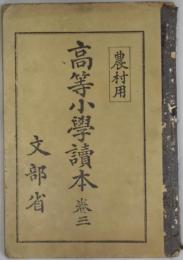 農村用
高等小學讀本 卷三
文部省